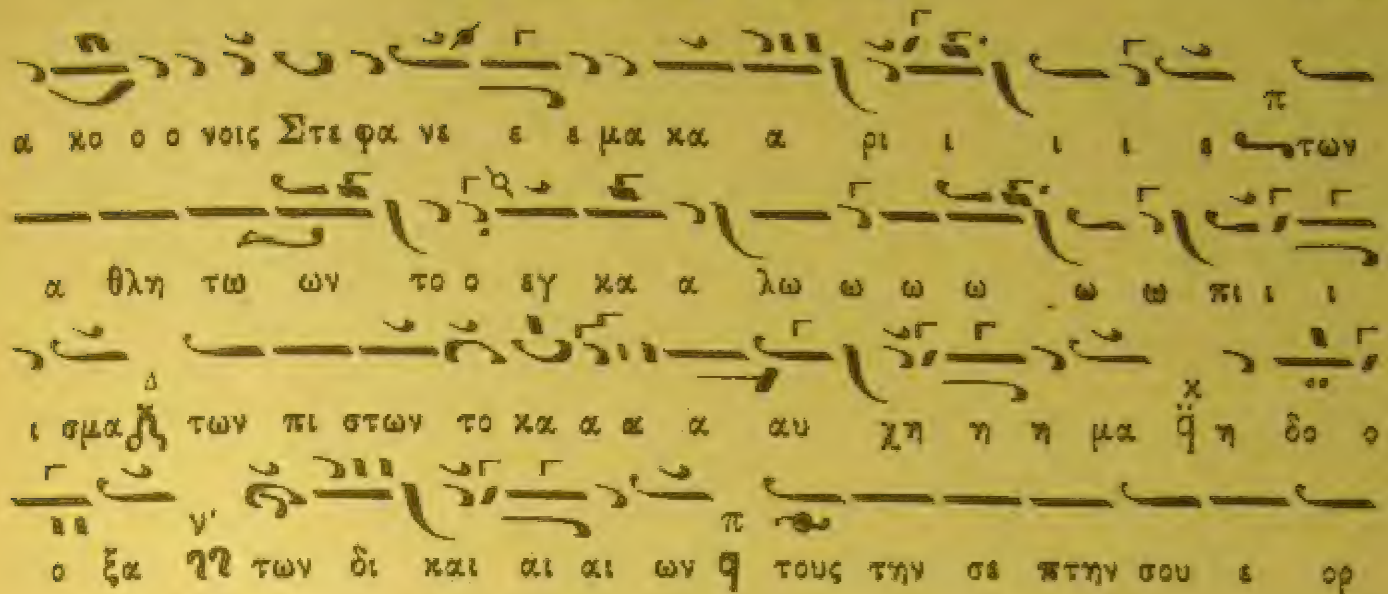 α κο ο ο νοις Στε φα νε ε ε μα κα α ρι ι ι ι ε των
α θλη τω ων το ο εγ κα α λω ω ω ω ω ω πι ι ι
ι σμα των πι στων το κα α α α αυ χη η η μα η δο ο
ο ξα των δι και αι αι ων τους την σε πτην σου ε ορ